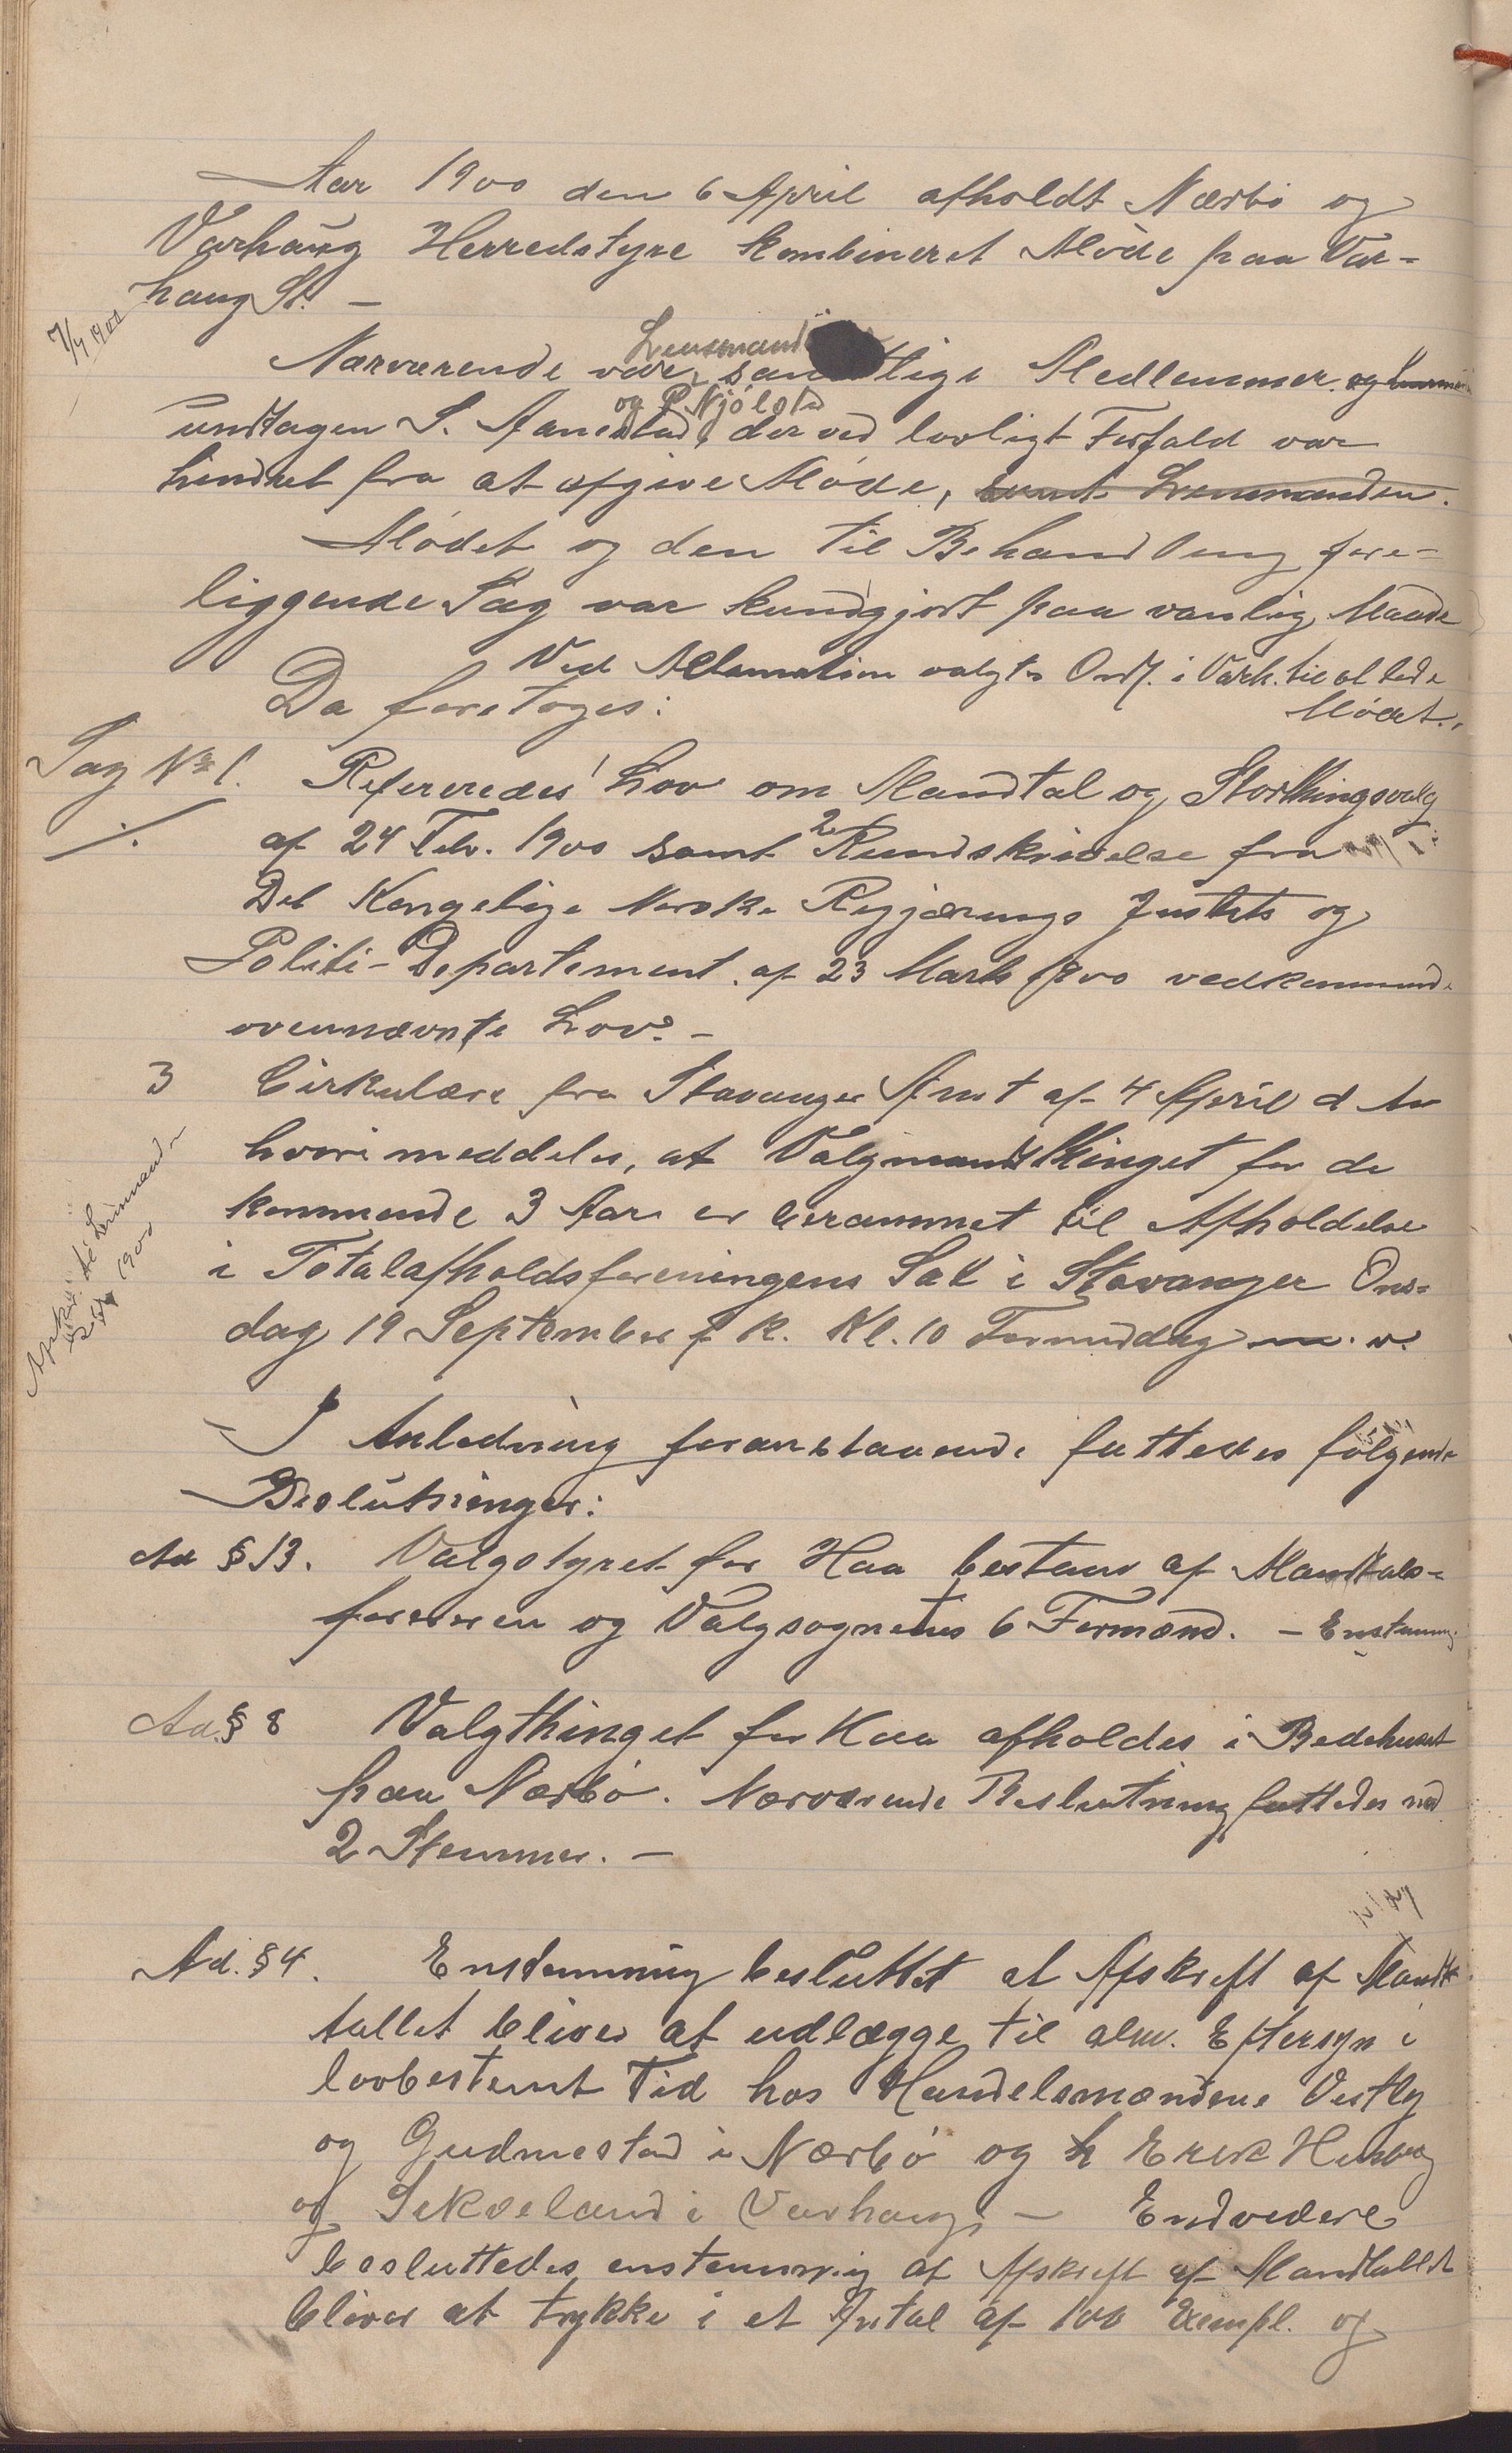 Aar 1900 den 6 April afholdt Nærbö og
Varhaug Herredstyre kombineret Möde paa Var-
haug St. –
7/4 1900
Lensmand
Nærværende var samtlige Medlemmer og
og P. Njölstad
undtagen S. Aanestad der ved lovligt Forfald var
hindret fra at afgive Möde, samt Lensmanden.
Mödet og den til Behandling fore-
liggende Sag var kundgjort paa vanlig Maade
Ved Aclamation valgtes Ordf. i Varh. til at lede
Mödet.
Da foretoges:
Sag No 1. Refereredes Lov om Mandtal og Storthingsvalg
af 24 Feb. 1900 samt 2 Rundskrivelse fra
Det Kongelige Norske Regjærings Justits og
Politi-Departement af 23 Marts 1900 vedkommende
ovennævnte Lov. –
3 Cirkulære fra Stavanger Amt af 4 April d Aar
hvori meddeles, at Valgmandsthinget for de
kommende 3 Aar er berammet til Afholdelse
i Totalafholdsforeningens Sal i Stavanger Ons-
dag 19 September f. k. Kl. 10 Formiddag m. v.
Afskr. til Lensmand
1900
I Anledning foranstaaende fattedes fölgende
Beslutninger:
Ad § 13. Valgstyret for Haa bestaar af Mandtals-
föreren og Valgsognets 6 Formænd. – Enstemmig
Ad. § 8 Valgthinget for Haa afholdes i Bedehuset
paa Nærbö. Nærværende Beslutning fattedes mod
2 Stemmer. –
Ad. § 4. Enstemmig besluttet at Afskrift af Mandt-
tallet bliver at udlægge til alm. Eftersyn i
lovbestemt Tid hos Handelsmændene Vestly
og Gudmestad i Nærbö og Erik
og Sikveland i Varhaug – Endvidere
besluttedes enstemmig at Afskrift af Mandtallet
bliver at trykke i et Antal af 100 Exempl. og